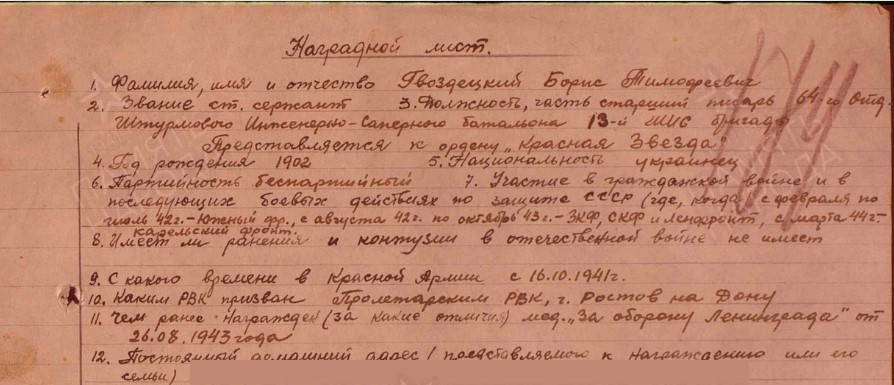 Наградной лист.
1. Фамилия, имя и отчество Гвоздецкий Борис Тимофеевич
2. Звание ст. сержант 3. Должность, часть старший писарь 64-го Отд.
Штурмового Инженерно-Саперного батальона 13-й ШИС бригады
Представляется к ордену „Красная Звезда"
4. Год рождения 1902 5. Национальность украинец
6. Партийность беспартийный 7. Участие в гражданской войне и в
последующих боевых действиях по защите СССР (где, когда) с февраля по
июль 42г. - Южный фр., с августа 42г. по октябрь 43г. - ЗКФ, СКФ и Ленфронт, с марта 44г. -
карельский фронт.
8. Имеет ли ранения и контузии в отечественной войне не имеет
9. С какого времени в Красной Армии с 16.10.1941г.
10. Каким РВК призван Пролетарским РВК, г. Ростов на Дону
11. Чем ранее награжден (за какие отличия) мед. „За оборону Ленинграда" от
26.08.1943 года
12. Постоянный домашний адрес / представляемого к награждению или его
семьи)